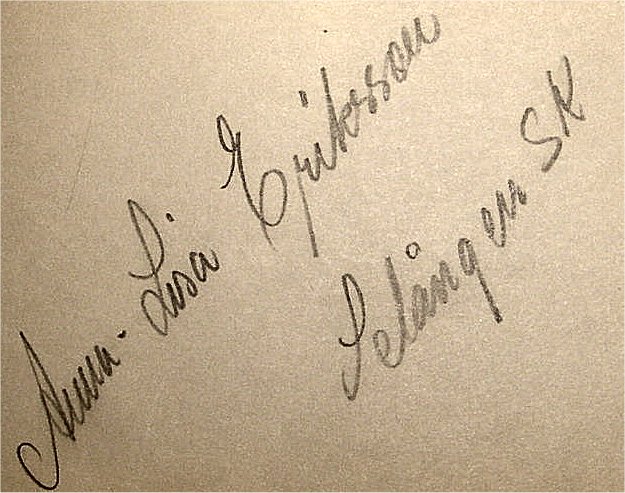 Anna-Lisa Eriksson
Selångers SK